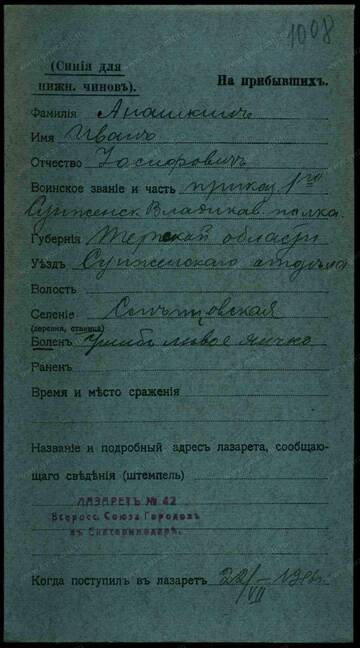 1008
(Синія для
нижн. чиновъ).
На прибывшихъ.
Фамилія Анашкинъ
Имя Иванъ
Отчество Іосифовичъ
Воинское званіе и часть приказ. 1го
Сунженск. Владикав. полка.
Губернія Терской области
Уѣздъ Сунженскаго отдѣла
Волость
Селеніе Слѣпцовская
(деревня, станица)
Боленъ ушибъ лѣвое яичко
Раненъ
Время и мѣсто сраженія
Названіе и подробный адресъ лазарета, сообщаю-
щаго свѣдѣнія (штемпель)
ЛАЗАРЕТЪ № 42
Всеросс. Союза Городовъ
въ Екатеринодарѣ.
Когда поступилъ въ лазаретъ 22/VII – 1916г.